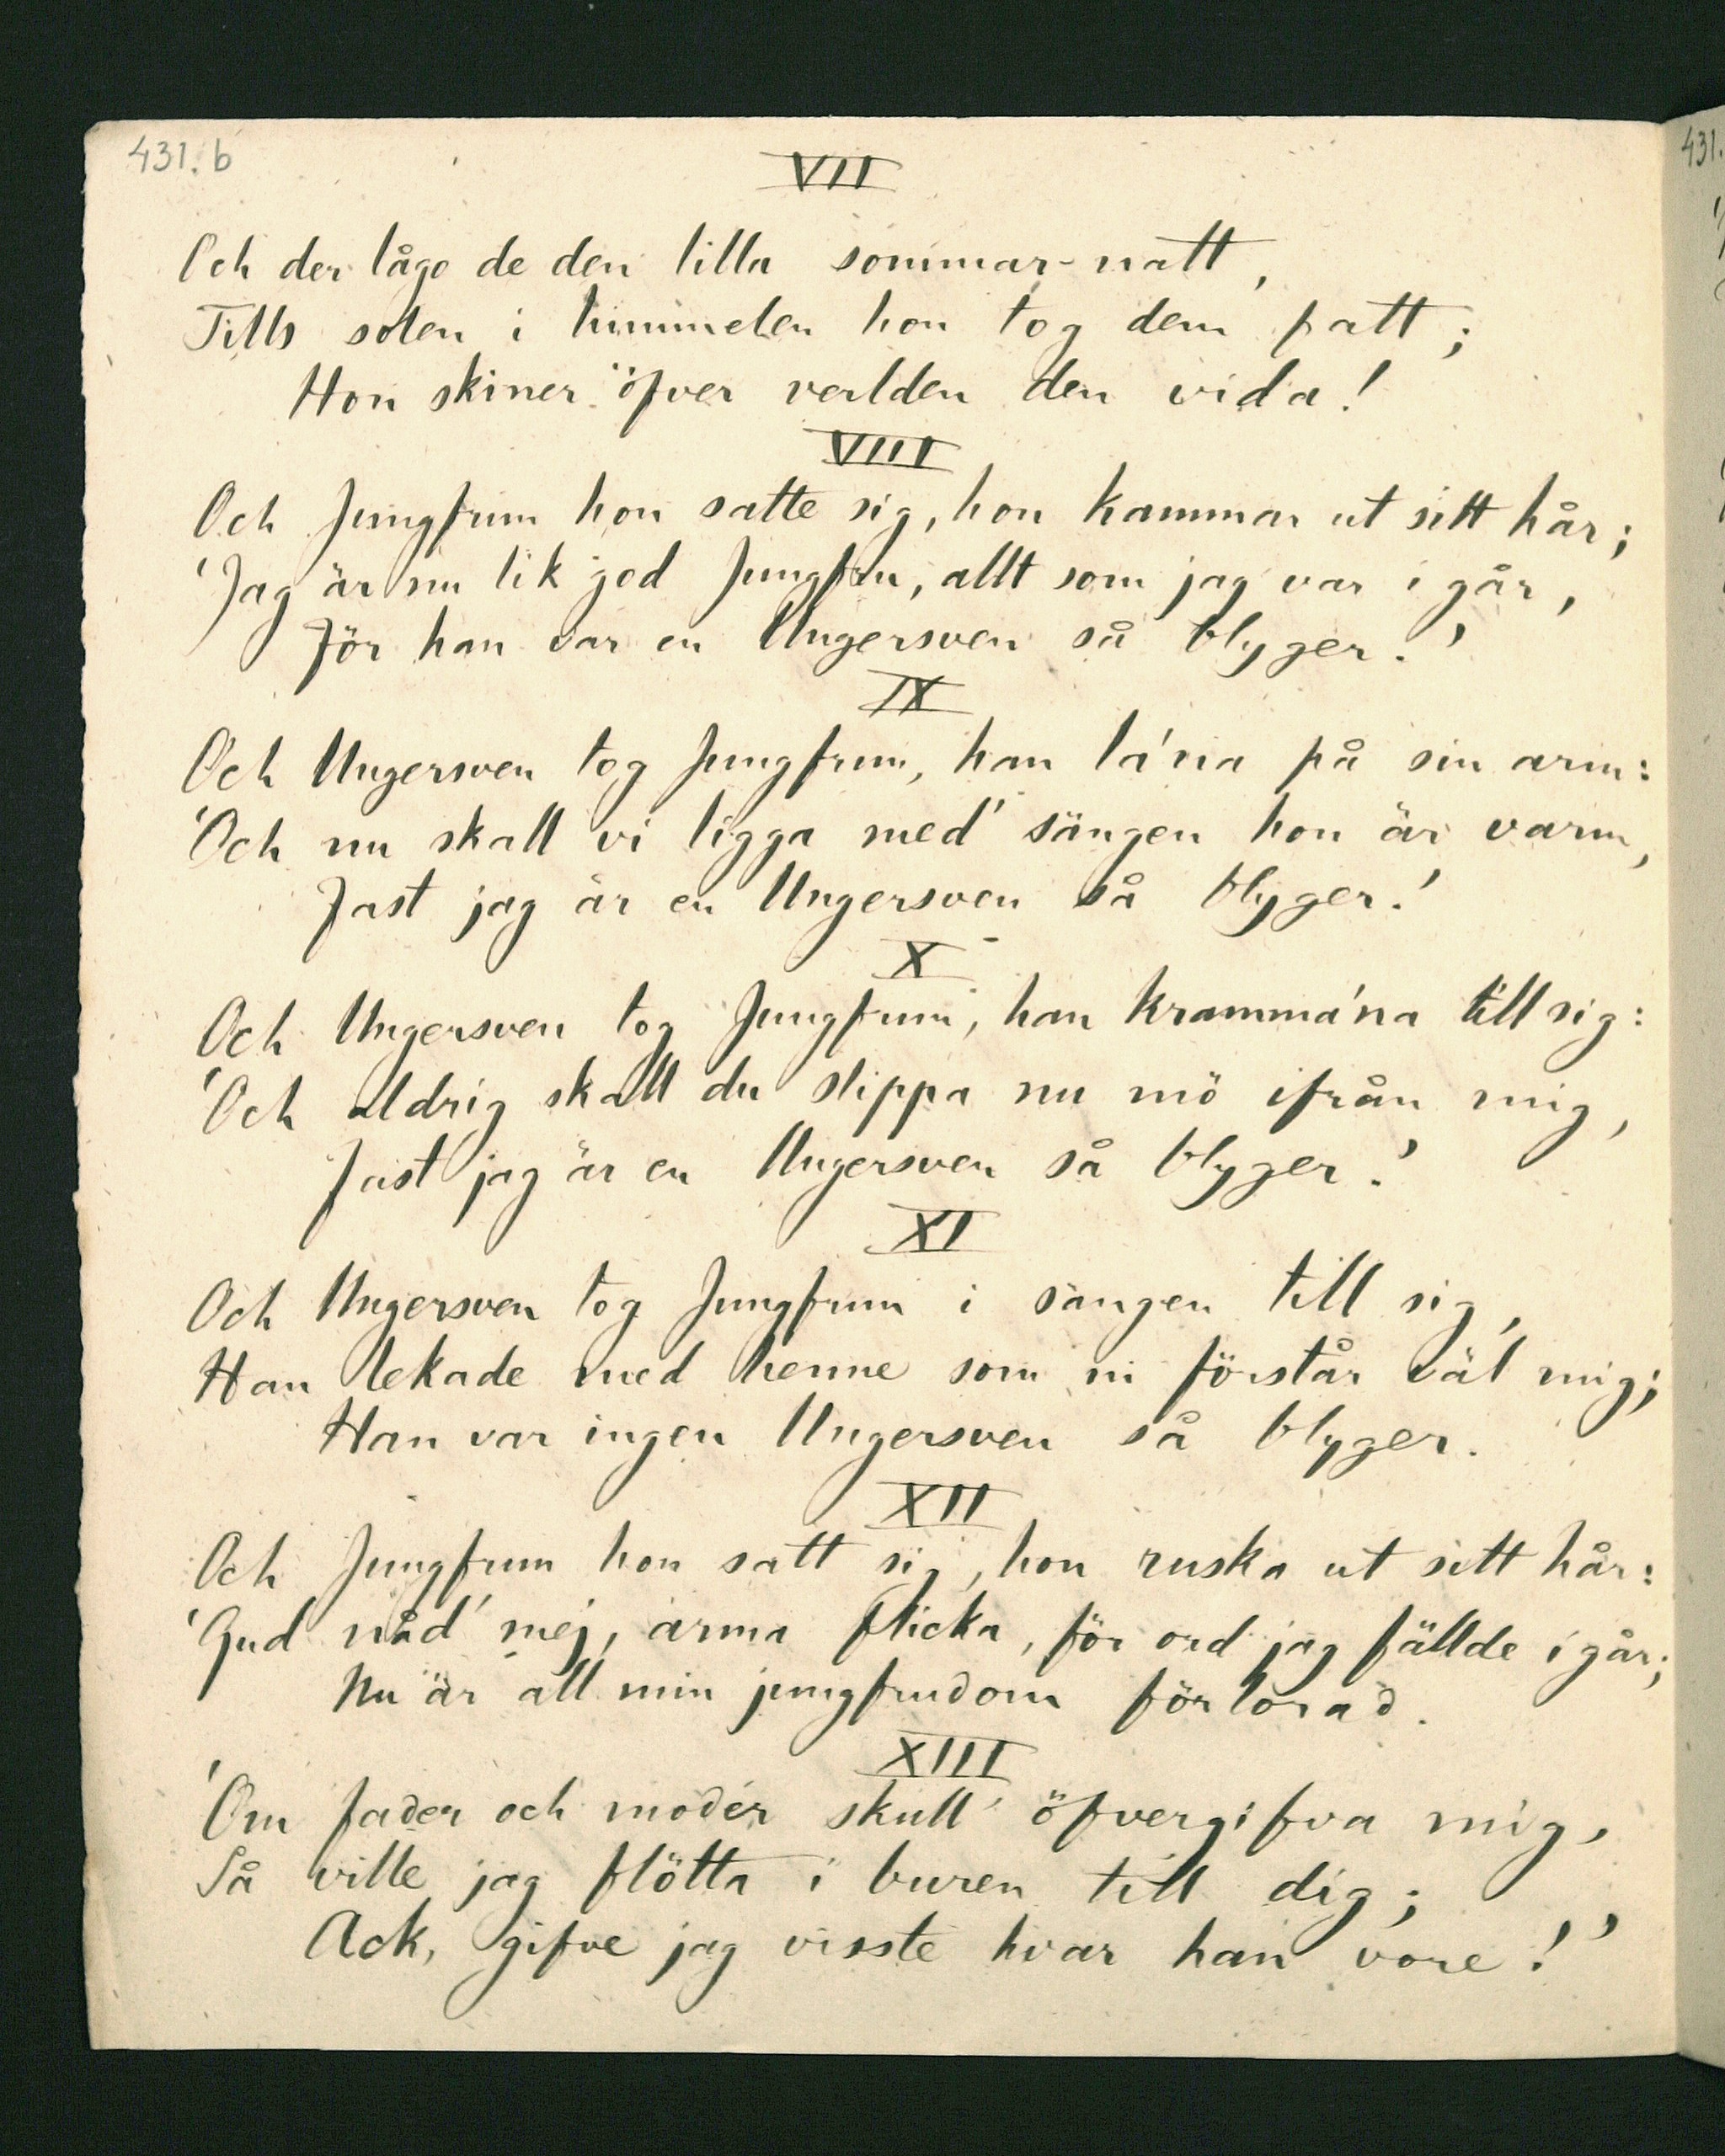 431. b
VII
Och der lågo de den lilla sommar-natt,
Tills solen i himmelen hon tog dem fatt;
Hon skiner öfver verlden den vida!
VIII
Och Jungfrun hon satte sig, hon kammar ut sitt hår;
'Jag är nu lik god Jungfru, allt som jag var i går,
För han var en Ungersven så blyger.'
IX
Och Ungersven tog Jungfrun, han la'na på sin arm:
'Och nu skall vi ligga med' sängen hon är varm,
Fast jag är en Ungersven så blyger.'
X
Och Ungersven tog Jungfrun, han kramma'na till sig:
'Och aldrig skall du slippa nu mö ifrån mig,
Fast jag är en Ungersven så blyger.'
XI
Och Ungersven tog Jungfrun i sängen till sig,
Han lekade med henne som ni förstår väl mig;
Han var ingen Ungersven så blyger.
XII
Och Jungfrun hon satt sig, hon ruska ut sitt hår:
'Gud nåd' mej, arma flicka, för ord jag fällde i går;
Nu är all min jungfrudom förlorad.
XIII
'Om fader och moder skull' öfvergifva mig,
Så ville jag flötta i buren till dig;
Ack, gifve jag visste hvar han vore!'
431.